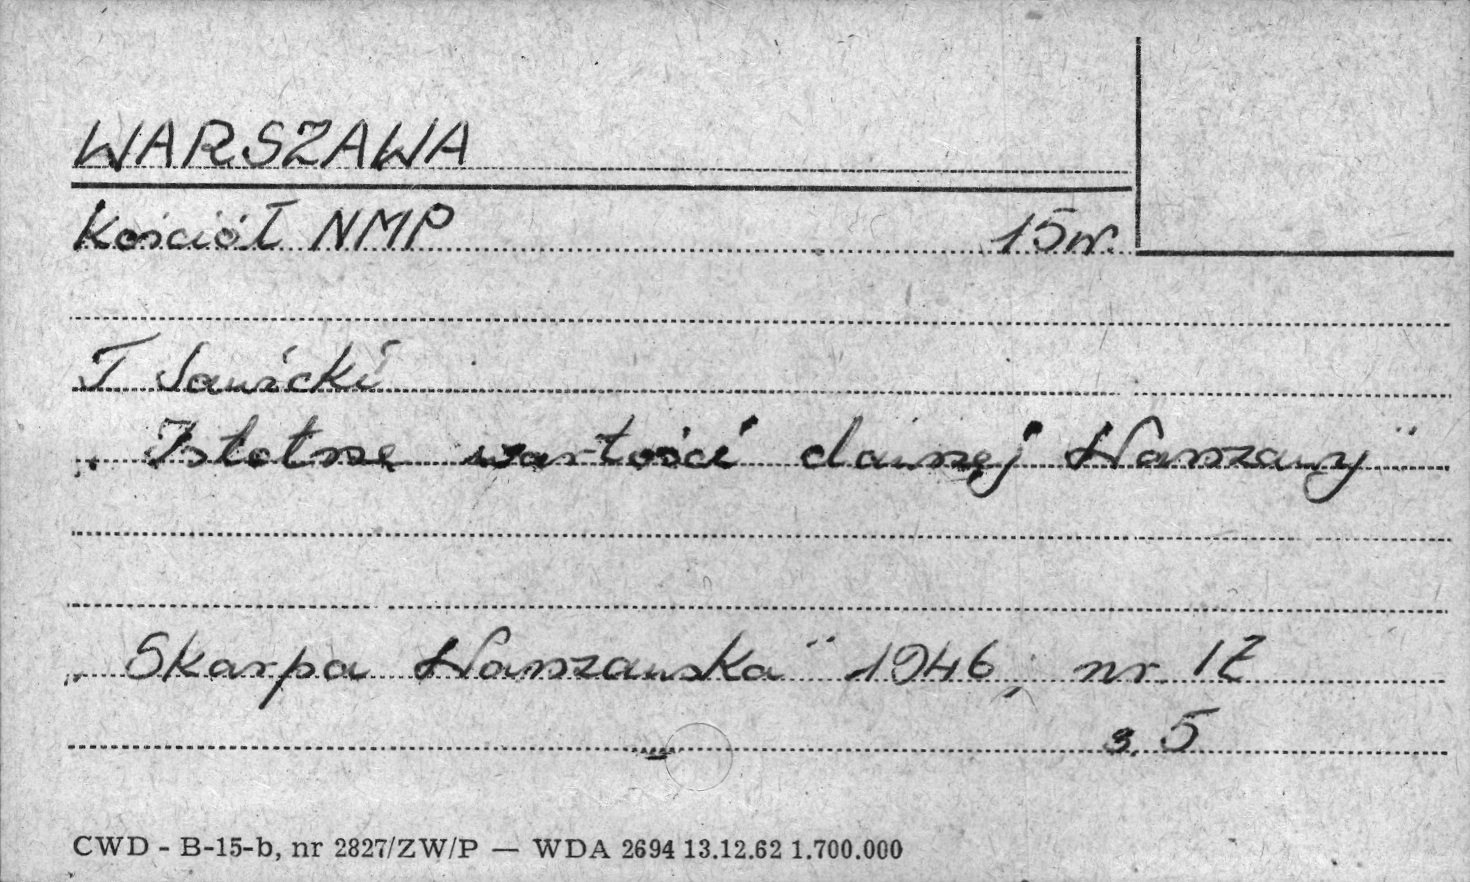 WARSZAWA
Kościół NMP 15w.
T Sawicki
„Istotne wartości dawnej Warszawy"
„Skarpa Warszawska" 1946, nr. 12
s. 5
CWD - B-15-b, nr 2827/ZW/P — WDA 2694 13.12.62 1.700.000